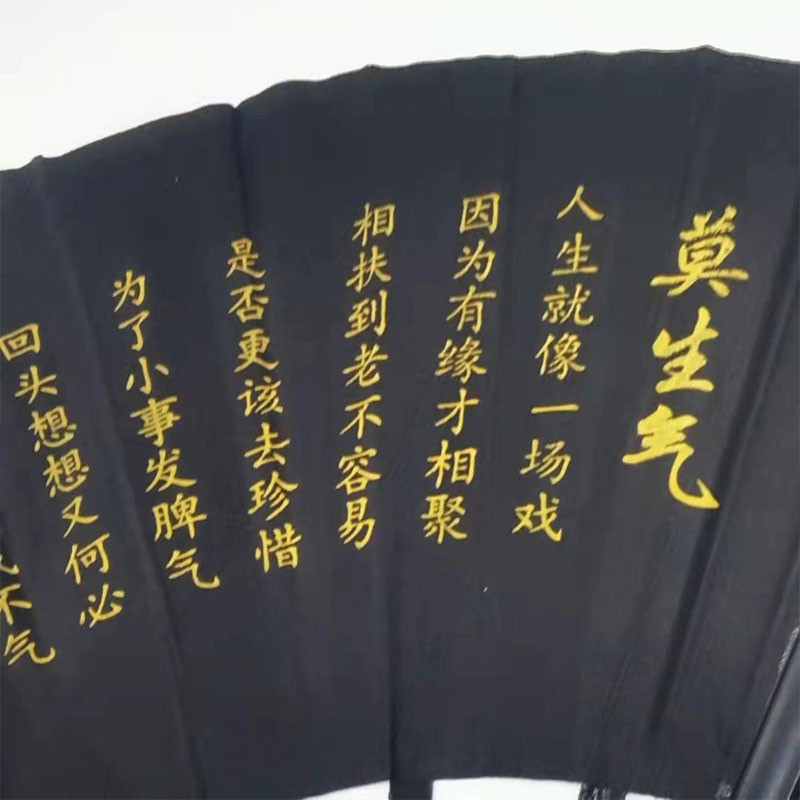 莫生气
人生就像一场戏
因为有缘才相聚
相扶到老不容易
是否更该去珍惜
为了小事发脾气
回头想想又何必
不气